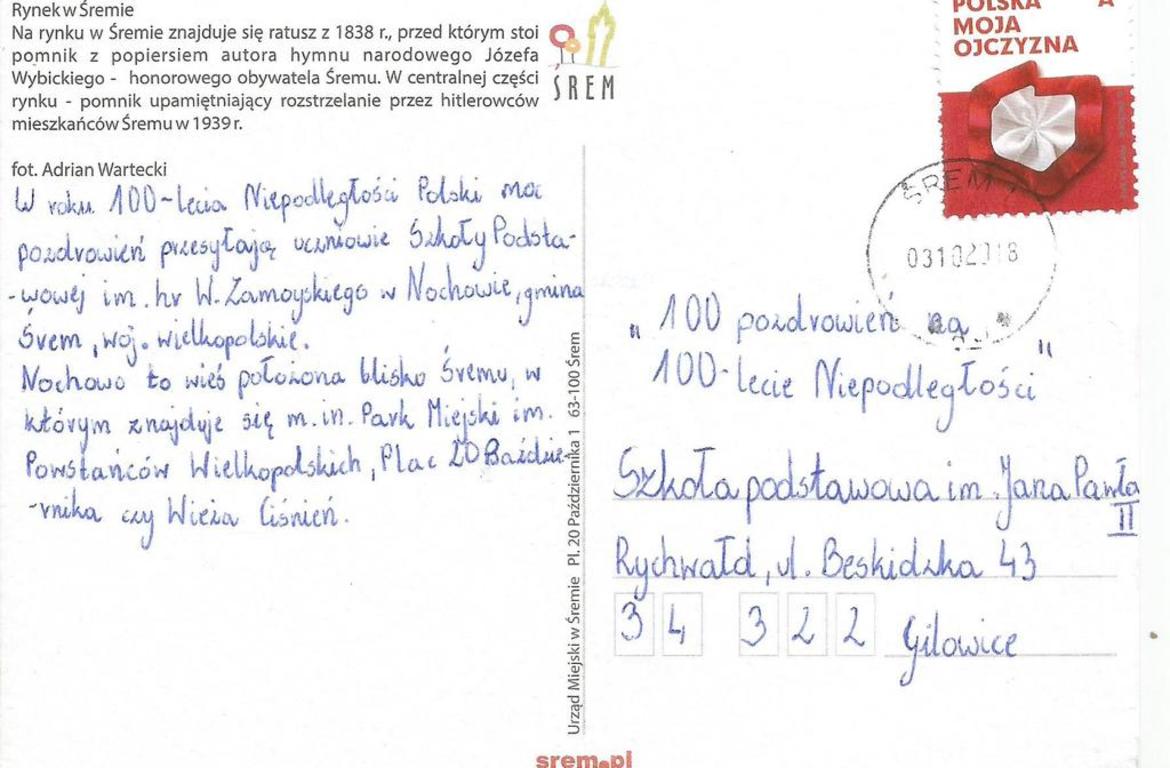 Rynek w Śremie
Na rynku w Śremie znajduje się ratusz z 1838 r., przed którym stoi
pomnik z popiersiem autora hymnu narodowego Józefa
Wybickiego - honorowego obywatela Śremu. W centralnej części
rynku - pomnik upamiętniający rozstrzelanie przez hitlerowców
mieszkańców Śremu w 1939 r.
fot. Adrian Wartecki
ŚREM
W roku 100-lecia Niepodległości Polski moc
pozdrowień przesyłają uczniowie Szkoły Podsta-
-wowej im. hr W. Zamoyskiego w Nochowie, gmina
Śrem, woj. wielkopolskie.
Nochowo to wieś położona blisko Śremu, w
którym znajduje się m.in. Park Miejski im.
Powstańców Wielkopolskich, Plac 20 Paździe-
-rnika czy Wieża Ciśnień.
Urząd Miejski w Śremie Pl. 20 Października 1 63-100 Śrem
srem.pl
POLSKA A
MOJA
OJCZYZNA
ŚREM
03102018
„ 100 pozdrowień na
100-lecie Niepodległości "
Szkoła podstawowa im. Jana Pawła
II
Rychwałd, ul. Beskidzka 43
34 322 Gilowice